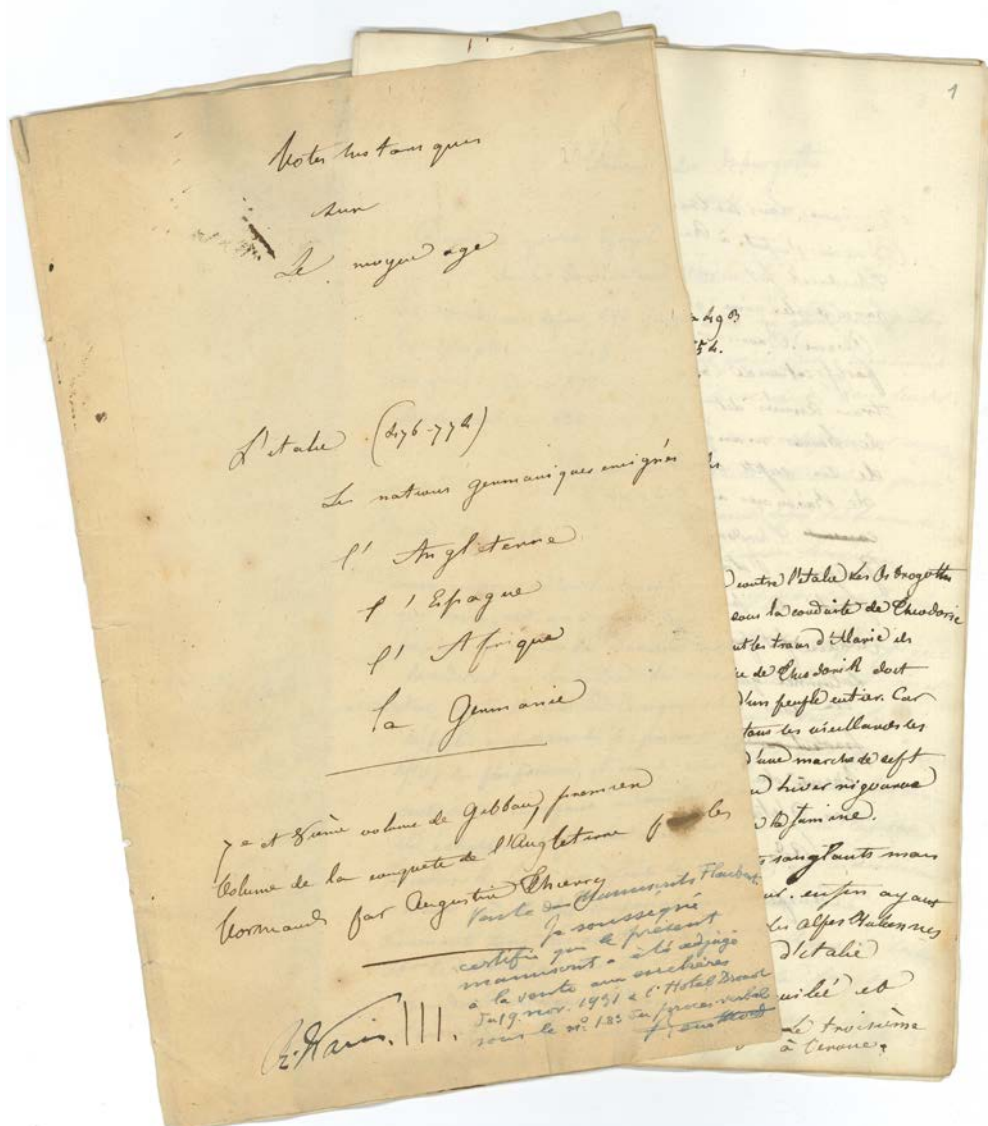 Notes historiques
sur
Le moyen age
L'italie (476-774)
Les nations germaniques emigrées
l'Angleterre
l'Espagne
l'Afrique
la Germanie
7e et 8ième volume de Gibbon, premier
volume de la conquete de l'Angleterre par les
Normands par Augustin Thierry
Vente des Manuscrits Flaubert
Je soussigné
certifie que le présent
manuscrit a été adjugé
à la vente aux enchères
du 19 nov. 1931 à l'Hotel Drouot
sous le n° 183 du procès-verbal
III.
1
contre l'italie Les Ostrogoths
sous la conduite de Theodoric
d'Alaric et
de Theodorik doit
d'un peuple entier. Car
les vieillards les
d'une marche de sept
hiver rigoureux
la famine.
sanglants mais
enfin ayant
les alpes Italiennes
d'italie
et
Le troisième
à Verone.